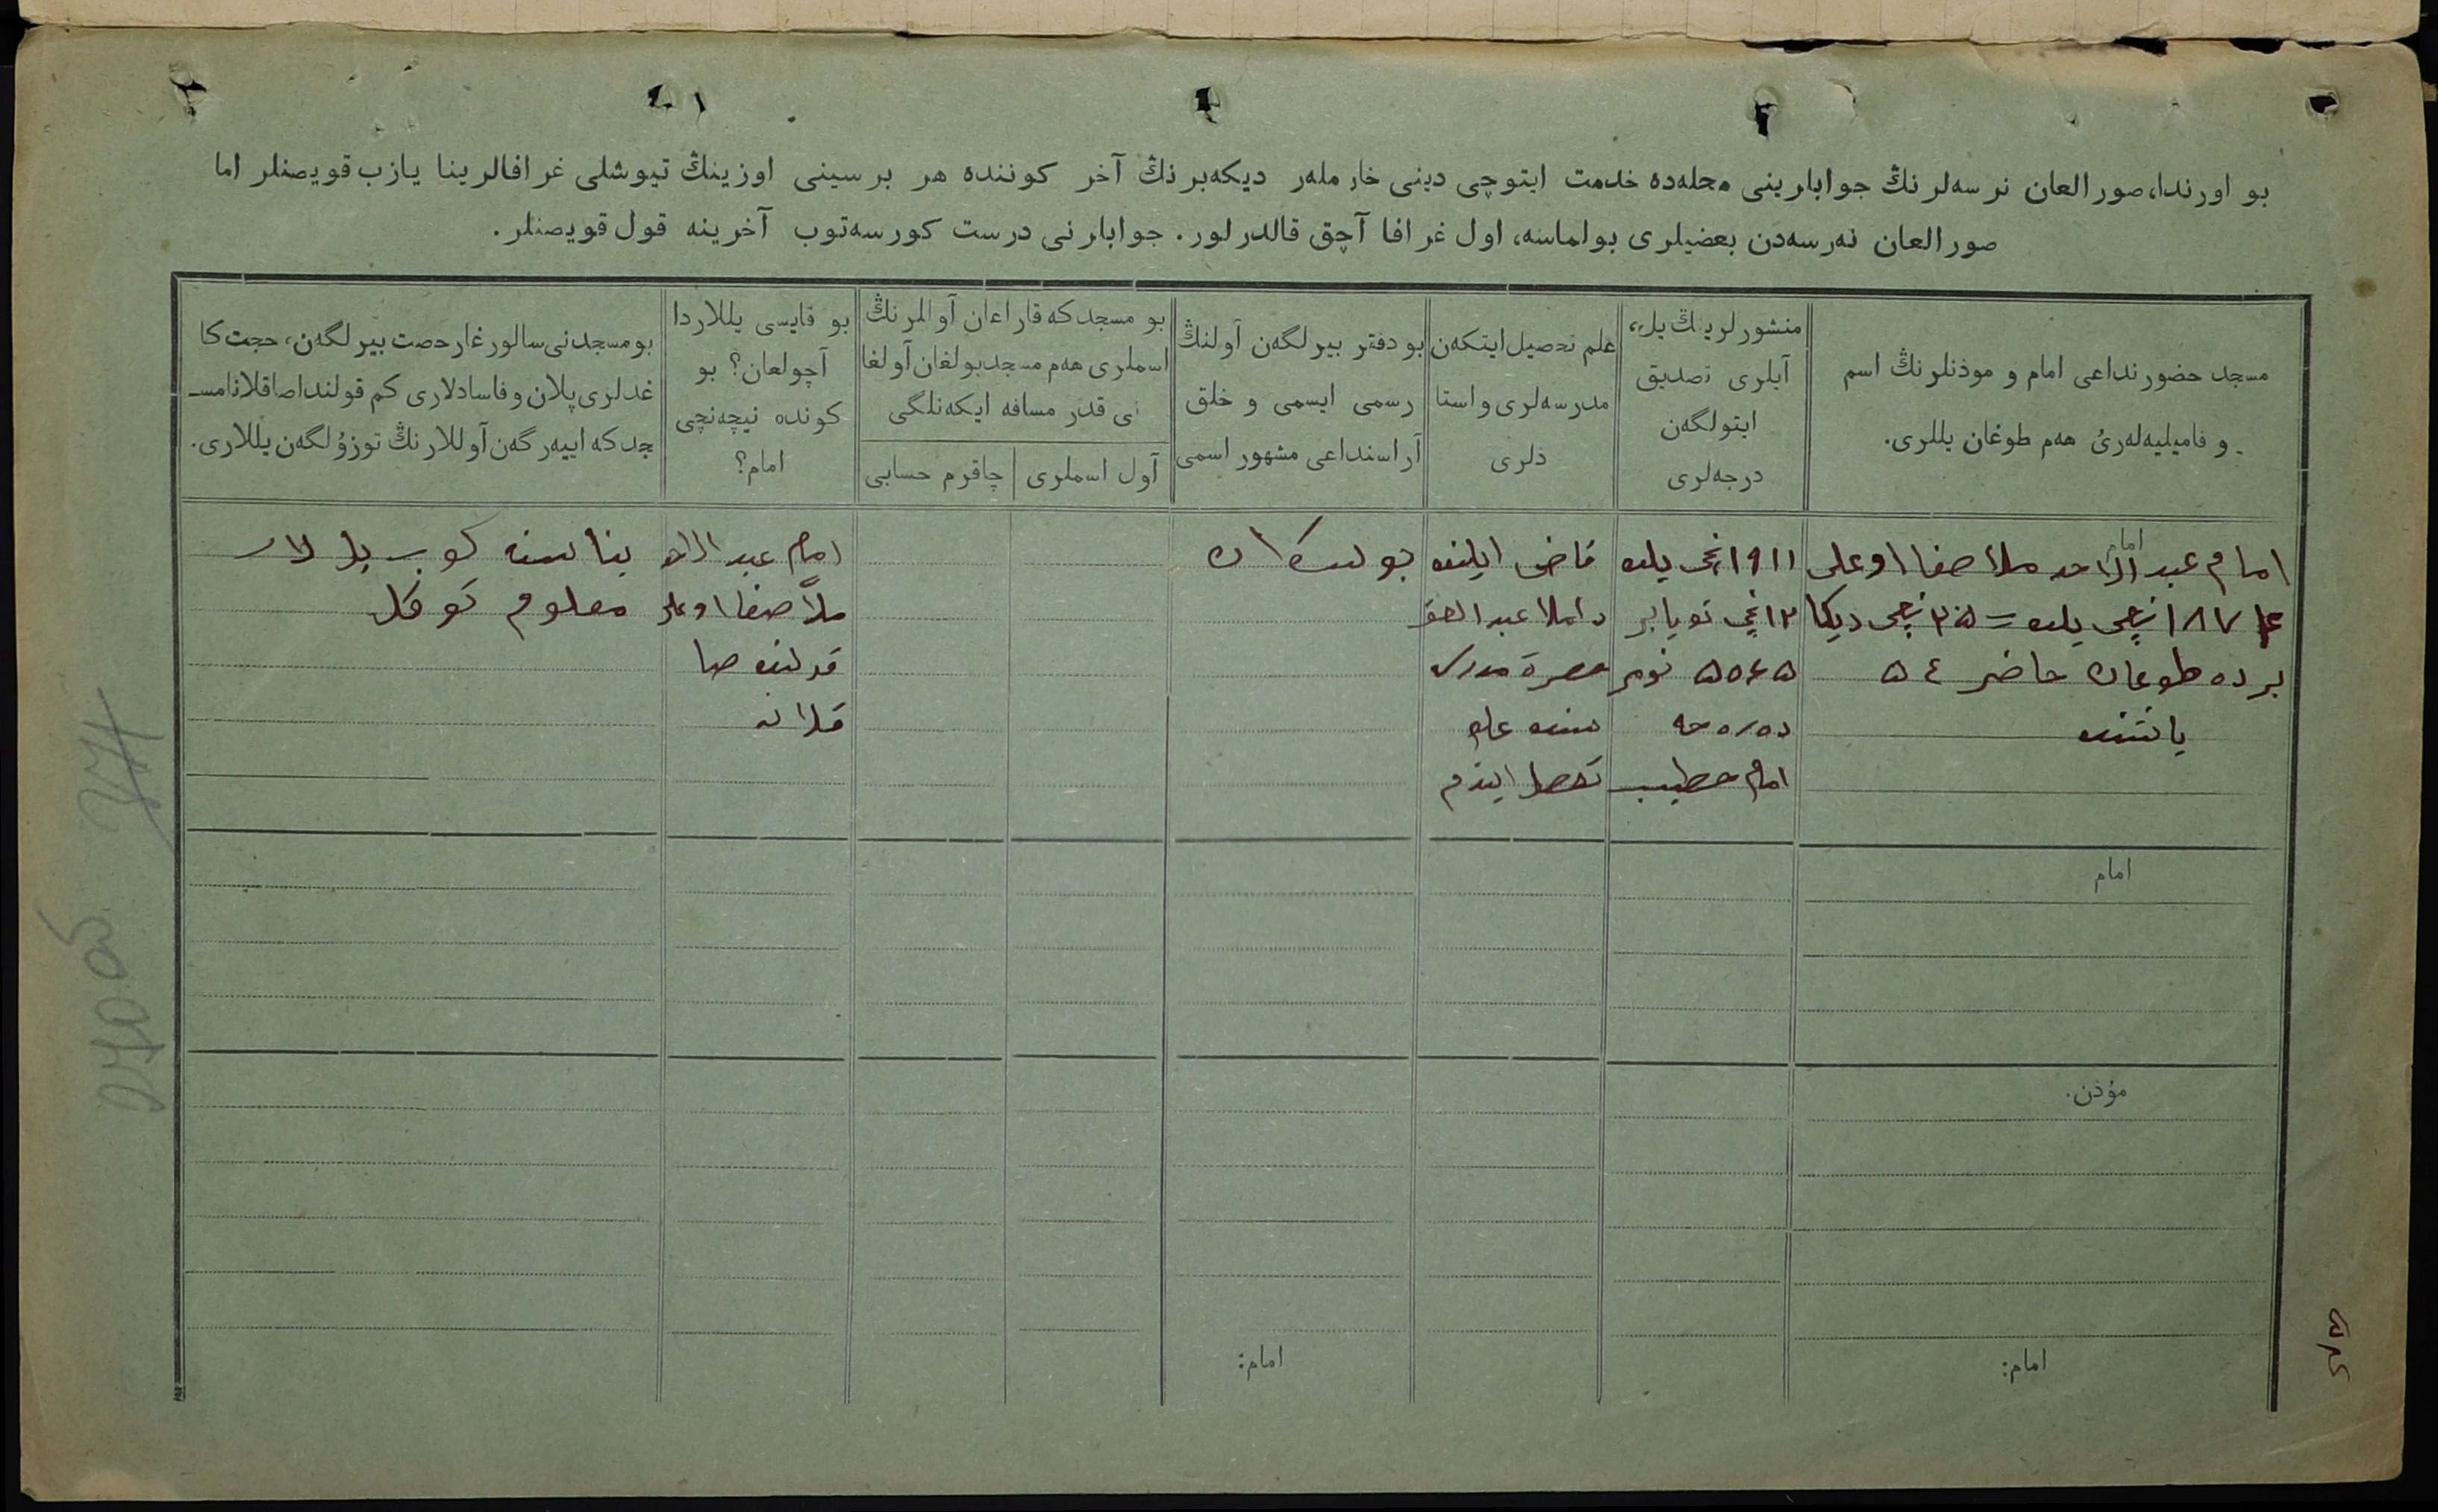 بو اورندا، صورالعان نرسەلرنڭ جوابارینی محلەدە خدمت ایتوچی دینی خارملەر دیکەبرنڭ آخر کوننده هر برسینی اوزینڭ تیوشلی غرافالرینا یازب قویصنلر اما
صورالعان نەرسەدن بعضیلری بولماسە، اول غرافا آچق قالدرلور. جوابارنی درست کورسەتوب آخرینه قول قویصنلر.
مسجد حضورنداعی امام و موذنلرنڭ اسم
و فامیلیەلەرێ هەم طوغان یللری.
منشورلرینڭ یل،
آیلری تصدیق
ایتولگەن
درجەلری
علم تحصیل ایتکەن
مدرسەلری و استا
ذلری
بو دفتر بیرلگەن آولنڭ
رسمی ایسمی و خلق
آراسنداعی مشهور اسمی
بو مسجدکه قاراعان آوللرنڭ
اسملری هەم مسجد بولغان آولغا
نی قدر مسافه ایکەنلگی
آول اسملری
چاقرم حسابی
بو قایسی یللاردا
آچولعان؟ بو
کونده نیچەنچی
امام؟
بو مسجدنی سالورغا رخصت بیرلگەن، حجت کا
غدلری پلان و فاسادلاری کم قولندا صاقلانا مسـ
جدکه اییەرگەن آوللارنڭ توزۇلگەن یللاری.
امام
امام عبدالاحد ملا صفا اوغلی
١٨٧٤ نچی یلده = ٢٥ نچی دیکا
برده طوغان حاضر ٥٤
یاشنده
١٩١١ نچی یلده
١٢ نچی نویابر
٥٥٤٥ نومر
امام خطیب
قاضی ایلنده
داملا عبدالحق
حضرة مدرسـ
سنده علم
تحصل ایتدم
امام عبدالاحد
ملا صفا اوغلی
قولنده صا
قلانه
بناسنه کوب یللار
معلوم توگل
امام
مؤذن.
امام:
امام: